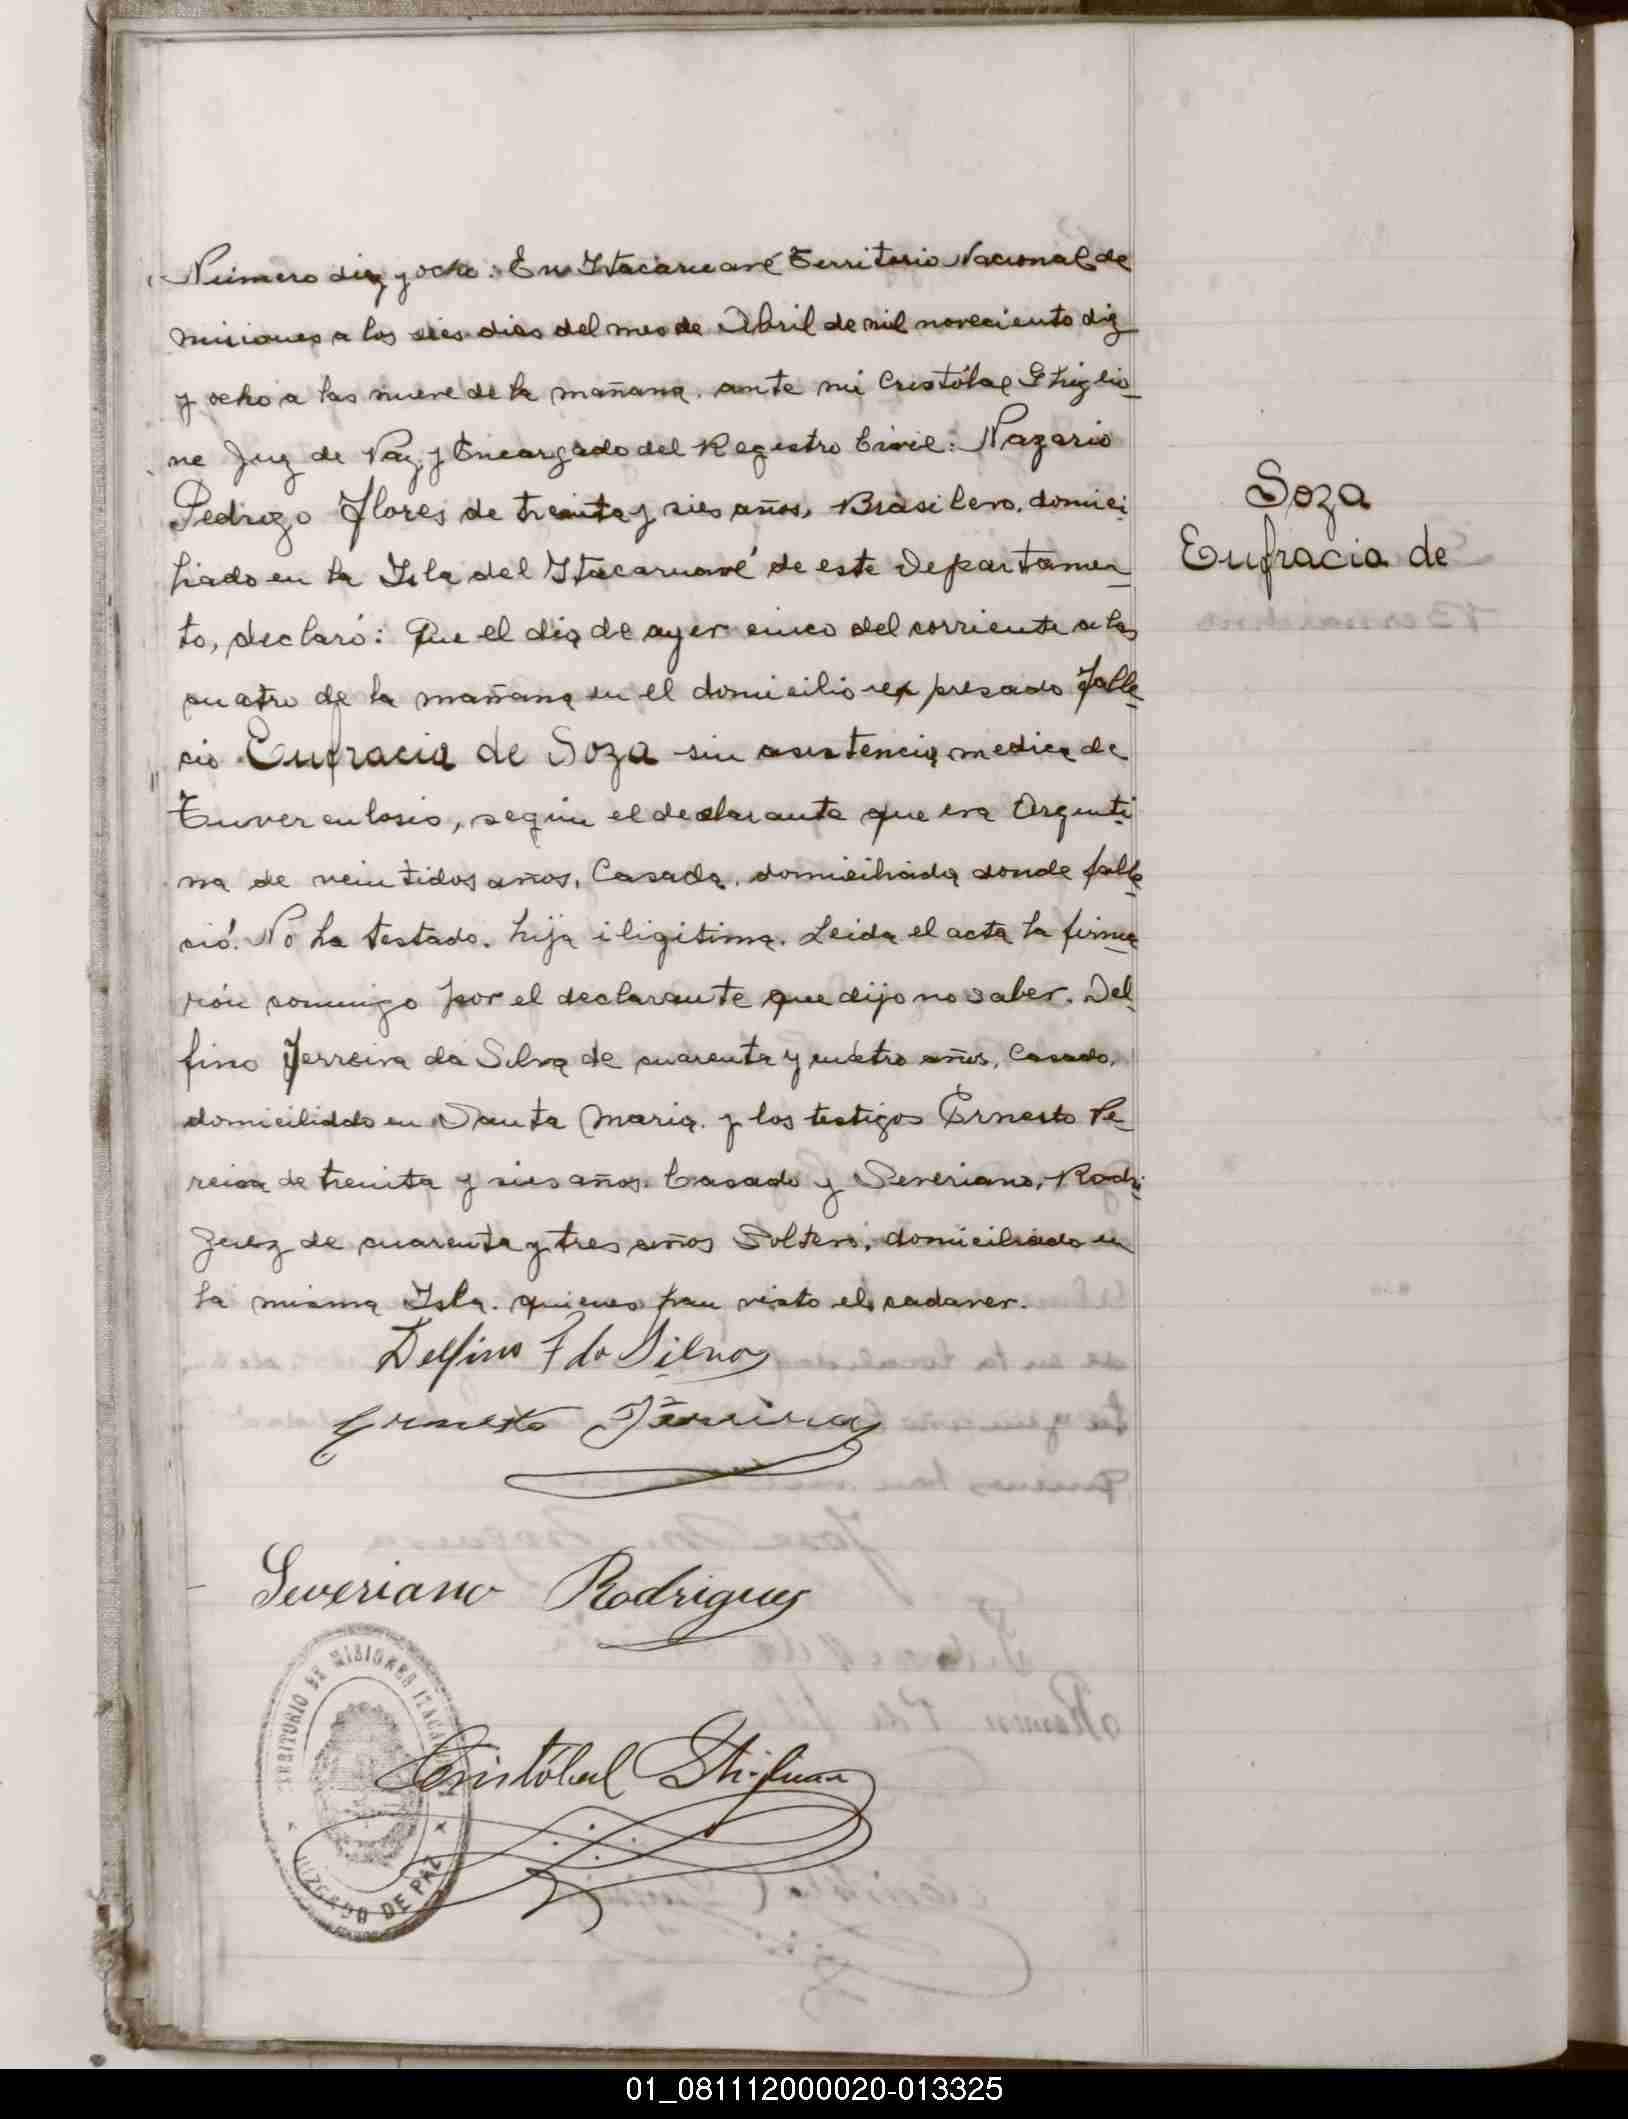 Número diez y ocho: En Itacaruaré Territorio Nacional de
Misiones a los seis dias del mes de Abril de mil noveciento diz
y ocho a las nueve de la mañana. ante mi Cristóbal Ghiglio_
ne Juez de Paz, y Encargado del Registro Civil: Nazario
Pedrozo Flores de treinta y sies años, Brasilero, domici_
liado en la Isla del Itacaruaré de este Departamen_
to, declaró: Que el dia de ayer cinco del corriente a las
cuatro de la mañana en el domicilio expresado falle_
cio Eufracia de Soza sin asistencia medica de
Tuverculosis, según el declarante que era Argenti_
na de veintidos años, Casada, domiciliada donde falle_
ció. No ha testado. hija iligitima. Leida el acta la firma_
rón conmigo por el declarante que dijo no saber. Del_
fino Ferreira da Silva de cuarenta y cuatro años, Casado,
domiciliddo en Santa Maria. y los testigos Ernesto Pe_
reira de treinta y sies años. Casado y Severiano, Rodri_
guez de cuarenta y tres años Soltero, domiciliado en
la misma Isla. quienes han visto el cadaver.
Soza
Eufracia de
Delfino F da Silva
Ernesto
Severiano Rodrigues
Cristóbal
TERRITORIO DE MISIONES
JUZGADO DE PAZ
01_081112000020-013325